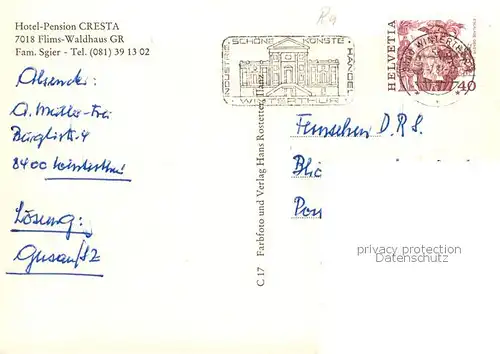 Hotel-Pension CRESTA
7018 Flims-Waldhaus GR
Fam. Sgier - Tel. (081) 39 13 02
Absender:
A. Müller-Frei
Bürglistr. 4
8400 Winterthur
Lösung:
INDUSTRIE · SCHÖNE KÜNSTE · HANDEL
WINTERTHUR
HELVETIA
40
C 17 Farbfoto und Verlag Hans Rostetter, Ilanz
Fernsehen D.R.S.
privacy protection
Datenschutz